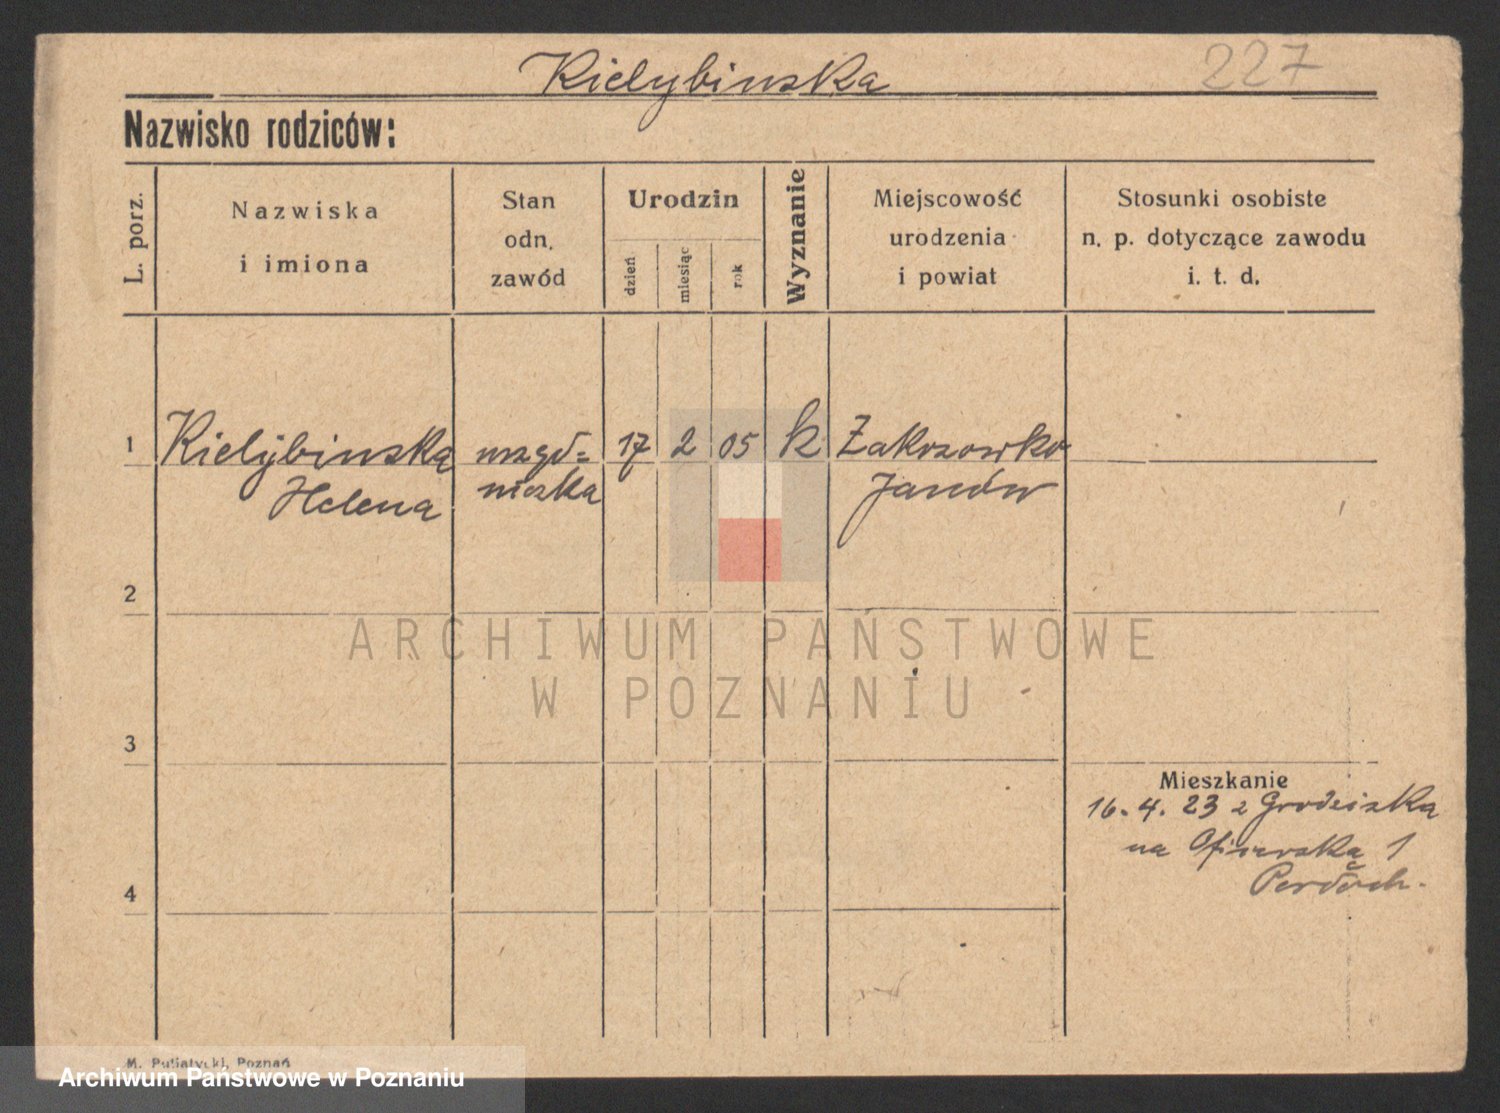 Kielybinska
227
Nazwisko rodziców:
L. porz.
Nazwiska
i imiona
Stan
odn.
zawód
Urodzin
dzień
miesiąc
rok
Wyznanie
Miejscowość
urodzenia
i powiat
Stosunki osobiste
n. p. dotyczące zawodu
i. t. d.
1 Kielybinska 17 2 05 k Zakrzowko
Helena Janów
2
ARCHIWUM PAŃSTWOWE
W POZNANIU
3
Mieszkanie
16. 4. 23 z Grodziska
na Oficerską 1
4
M. Pujiatycki, Poznań
Archiwum Państwowe w Poznaniu